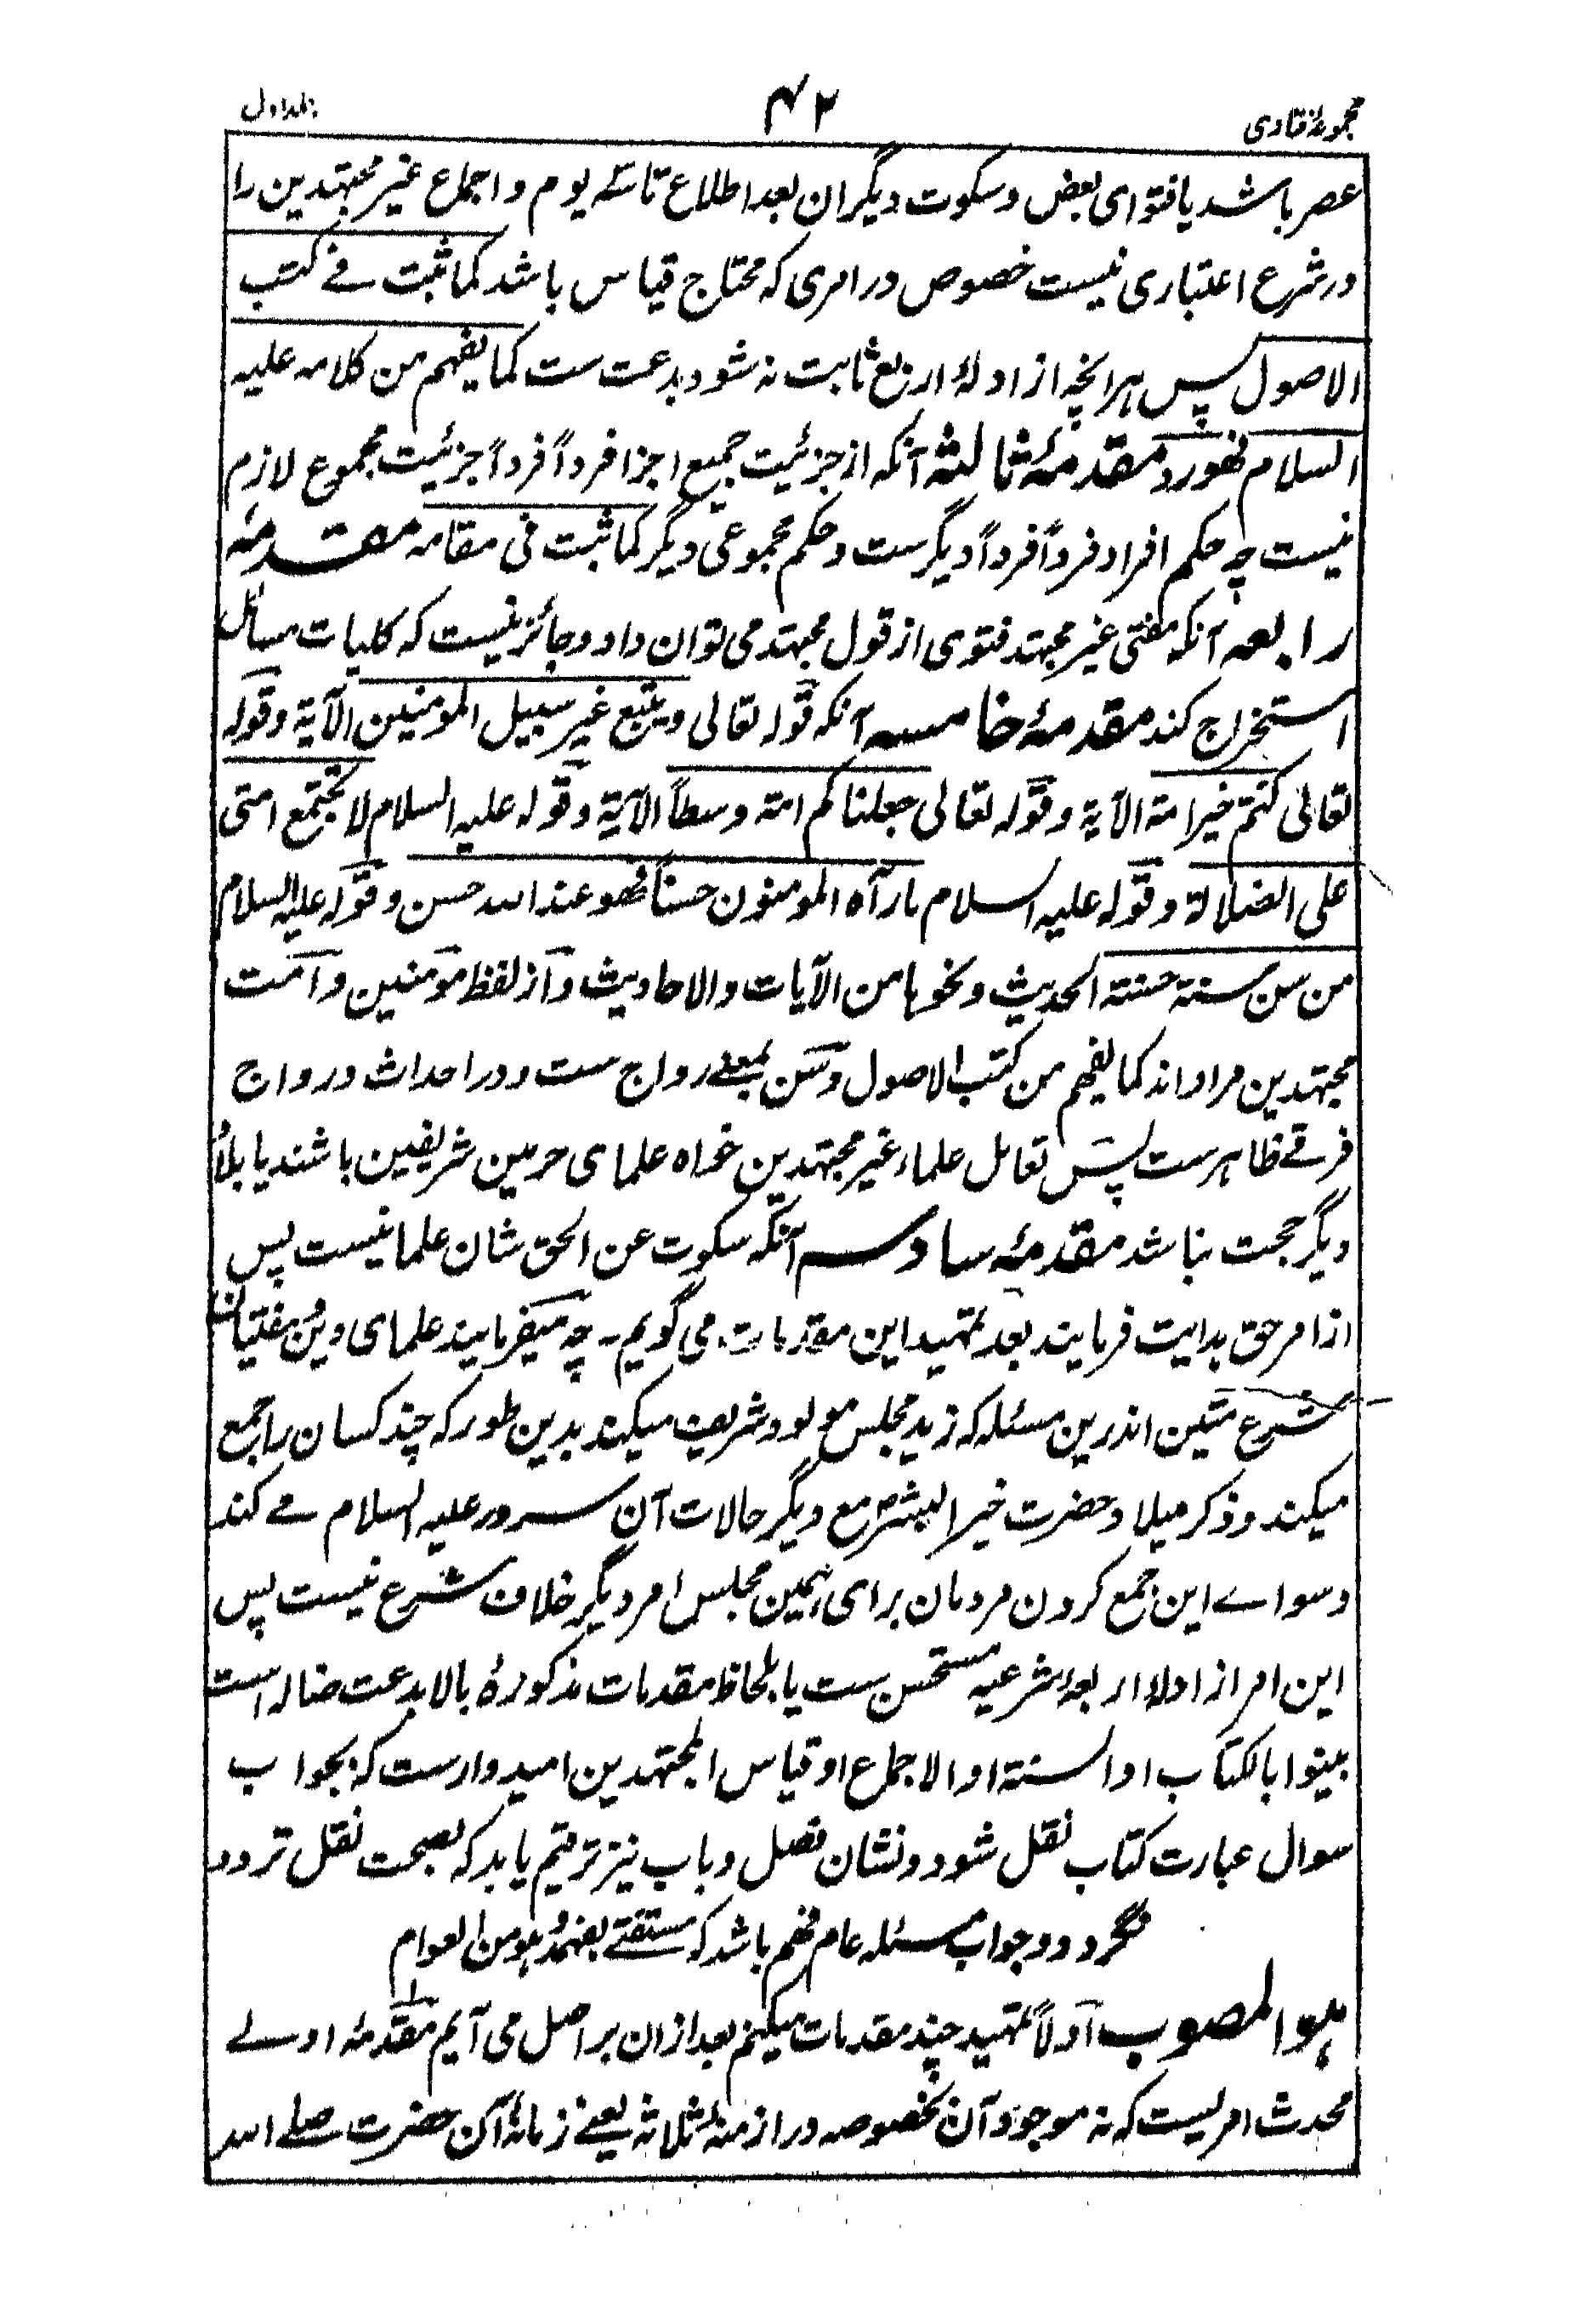 مجموعۂ فتاوی ۴۲ جلد اول
عصر باشد یا فتوای بعض و سکوت دیگران بعد اطلاع تا سہ یوم و اجماع غیر مجتہدین را
در شرع اعتباری نیست خصوص در امری کہ محتاج قیاس باشد کما ثبت فے کتب
الاصول پس ہر انچہ از ادلۂ اربع ثابت نہ شود بدعت ست کما یفہم من کلامہ علیہ
السلام فھو رد مقدمۂ ثالثہ آنکہ از جزئیت جمیع اجزا فرداً فرداً جزئیت مجموع لازم
نیست چہ حکم افراد فرداً فرداً دیگر ست و حکم مجموعی دیگر کما ثبت فی مقامہ مقدمۂ
رابعہ آنکہ مفتی غیر مجتہد فتوی از قول مجتہد می توان داد و جائز نیست کہ کلیات مسائل
استخراج کند مقدمۂ خامسہ آنکہ قولہ تعالی ویتبع غیر سبیل المومنین الآیۃ وقولہ
تعالی کنتم خیر امۃ الآیۃ وقولہ تعالی جعلناکم امۃ وسطاً الآیۃ وقولہ علیہ السلام لا تجتمع امتی
علی الضلالۃ وقولہ علیہ السلام ما رآہ المومنون حسناً فھو عند اللہ حسن وقولہ علیہ السلام
من سن سنۃ حسنۃ الحدیث ونحوہا من الآیات والاحادیث و از لفظ مومنین و امت
مجتہدین مراد اند کما یفہم من کتب الاصول وسن بمعنے رواج ست و در احداث و رواج
فرقے ظاہر ست پس تعامل علماء غیر مجتہدین خواہ علمای حرمین شریفین باشند یا بلاد
دیگر حجت نباشد مقدمۂ سادسہ آنکہ سکوت عن الحق شان علما نیست پس
از امر حق ہدایت فرمایند بعد تمہید این مقدمات می گویم۔ چہ میفرمایند علمای دین و مفتیان
شرع متین اندرین مسئلہ کہ زید مجلس مولود شریف میکند بدین طور کہ چند کسان را جمع
میکند و ذکر میلاد حضرت خیر البشرؐ مع دیگر حالات آن سرور علیہ السلام مے کند
و سواے این جمع کردن مردمان برای ہمین مجلس امر دیگر خلاف شرع نیست پس
این امر از ادلۂ اربعۂ شرعیہ مستحسن ست یا بلحاظ مقدمات مذکورۂ بالا بدعت ضالہ است
بینوا بالکتاب او السنۃ او الاجماع او قیاس المجتہدین امیدوار ست کہ بجواب
سوال عبارت کتاب نقل شود و نشان فصل و باب نیز ترقیم یابد کہ بصحت نقل تردد
نگردد و جواب مسئلہ عام فہم باشد کہ مستفتے بفہمد ہو من العوام
ہو المصوب اولاً تمہید چند مقدمات میکنم بعد ازان بر اصل می آیم مقدمۂ اولے
محدث امریست کہ نہ موجود آن بخصوصہ در ازمنۂ ثلاثہ یعنے زمانۂ آن حضرت صلے اللہ